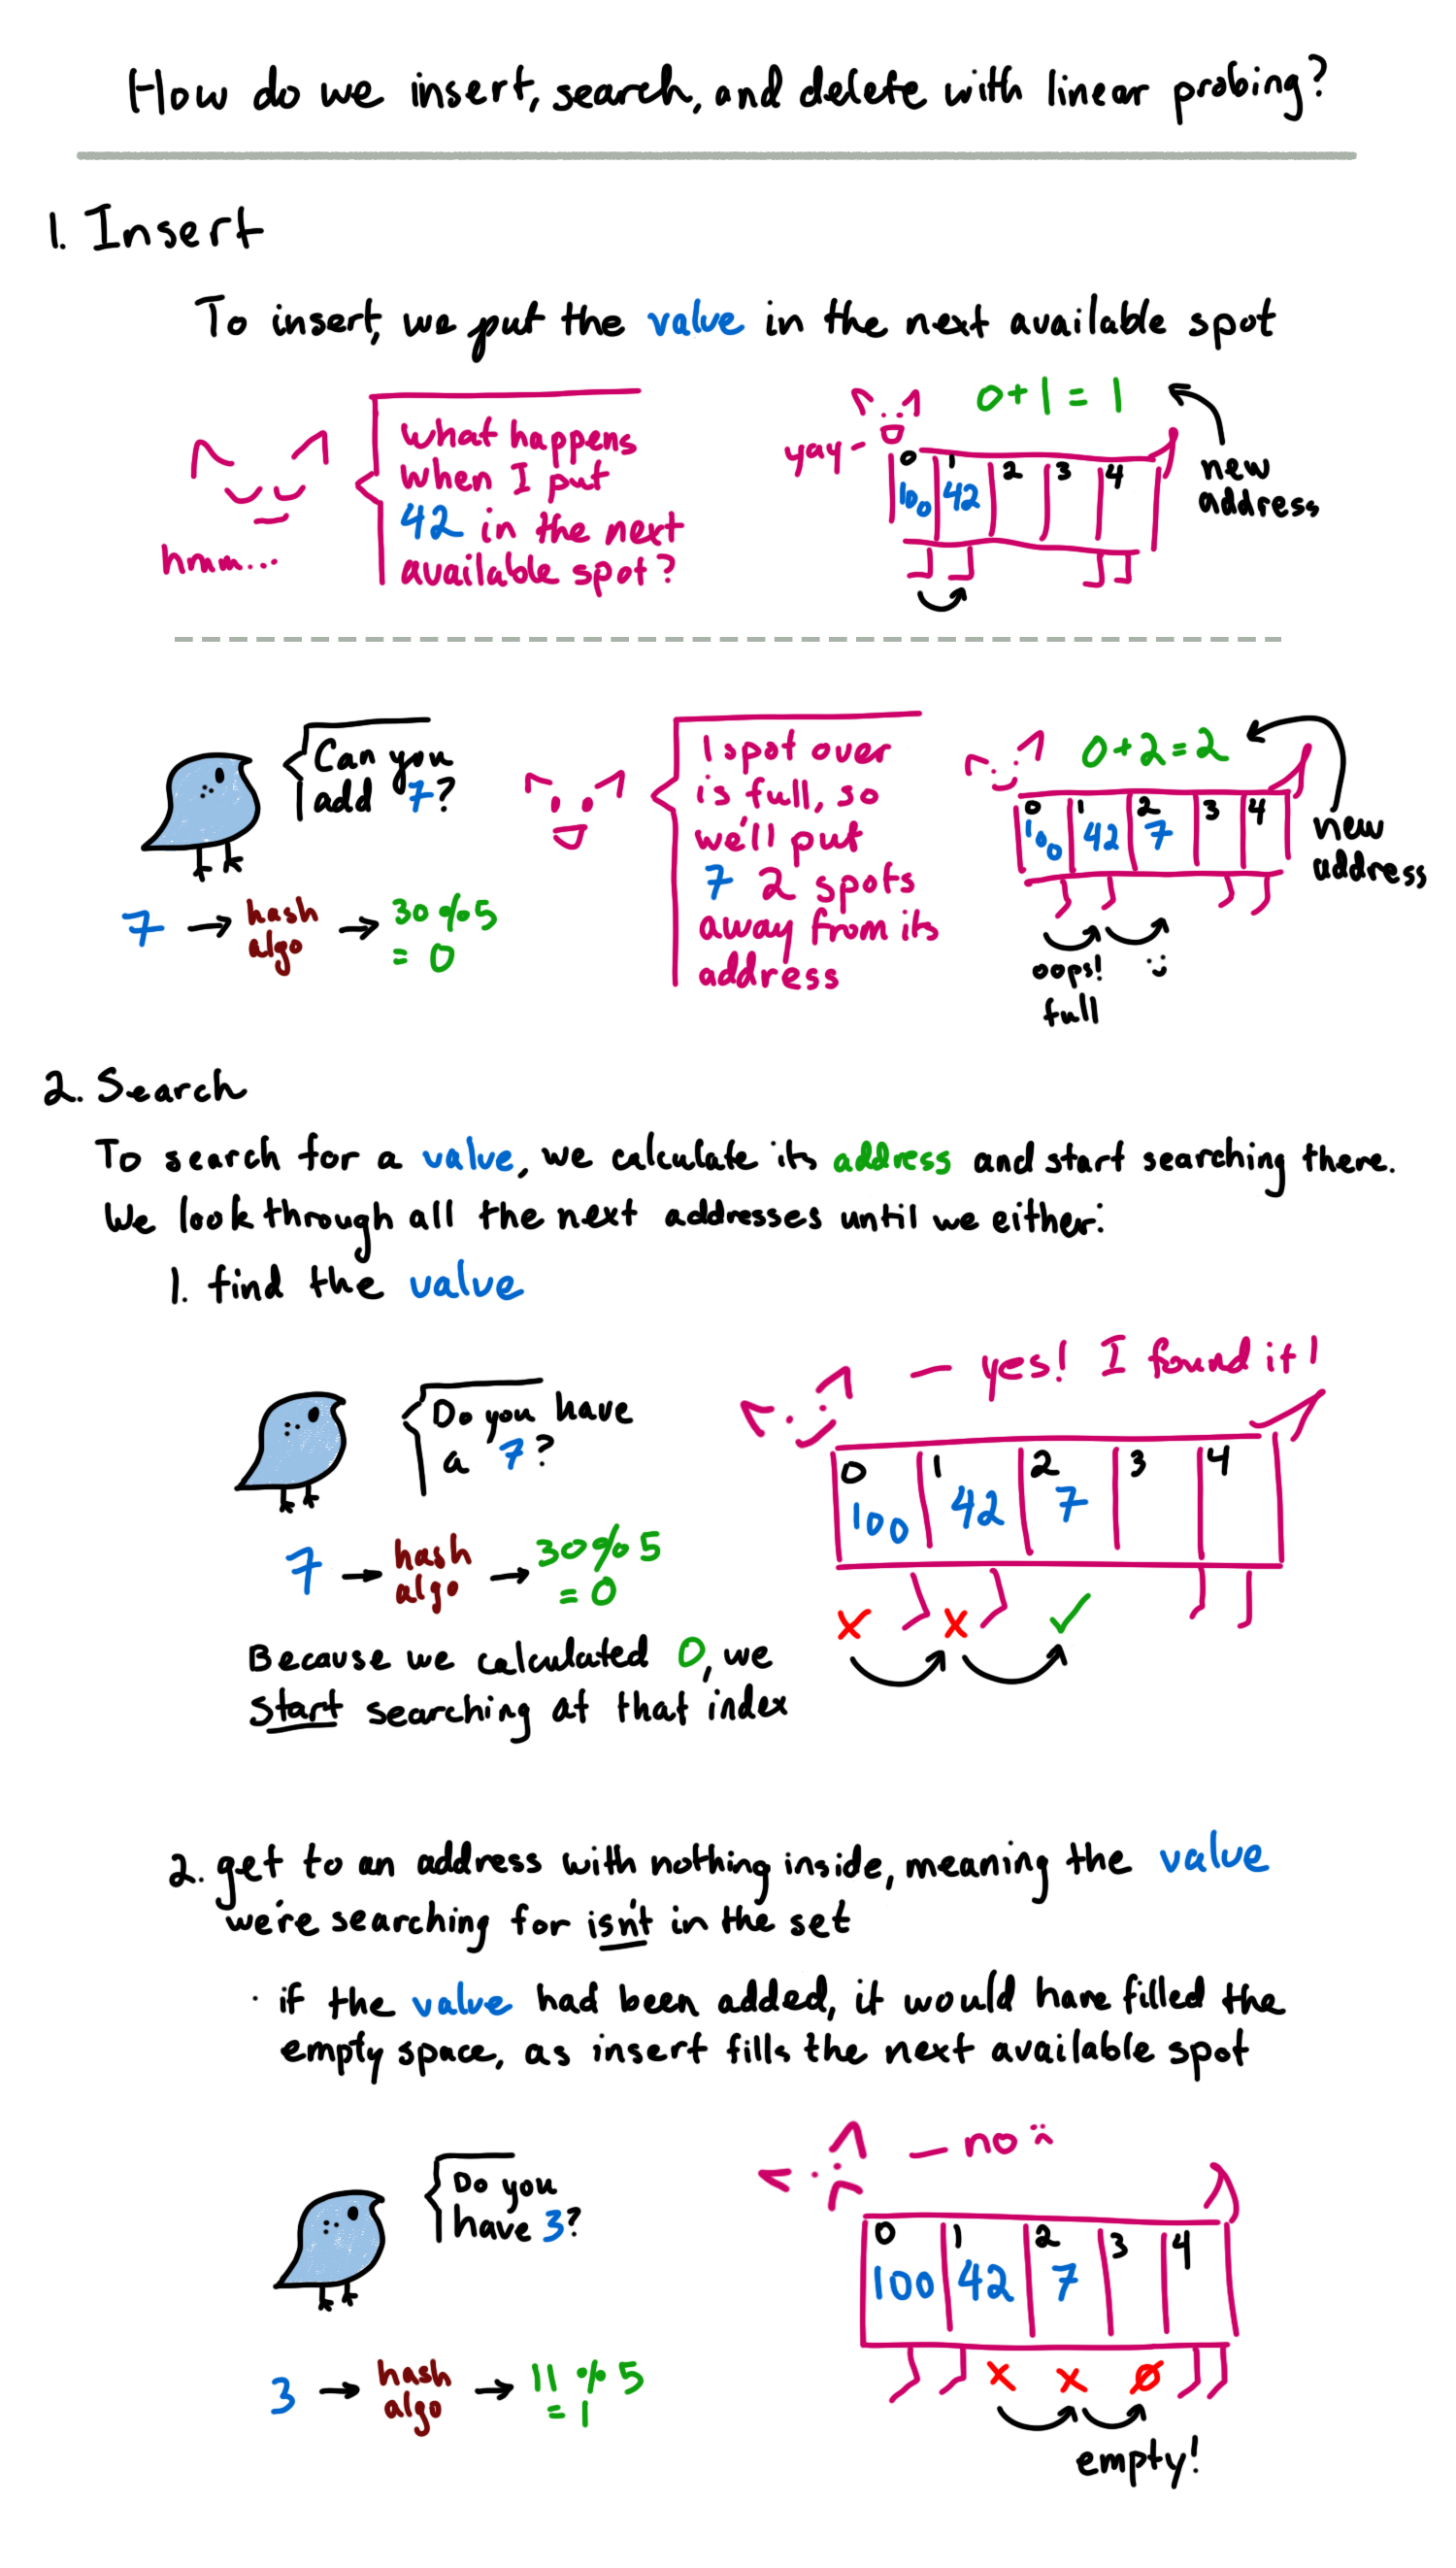 How do we insert, search, and delete with linear probing?
1. Insert
To insert, we put the value in the next available spot
hmm...
what happens
when I put
42 in the next
available spot?
yay -
0+1=1
new
address
0 1 2 3 4
100 42
Can you
add 7?
7 → hash
algo → 30%5
= 0
1 spot over
is full, so
we'll put
7 2 spots
away from its
address
0+2=2
new
address
0 1 2 3 4
100 42 7
oops!
full
:)
2. Search
To search for a value, we calculate its address and start searching there.
We look through all the next addresses until we either:
1. find the value
Do you have
a 7?
7 → hash
algo → 30%5
= 0
Because we calculated 0, we
start searching at that index
— yes! I found it!
0 1 2 3 4
100 42 7
x x ✓
2. get to an address with nothing inside, meaning the value
we're searching for isn't in the set
· if the value had been added, it would have filled the
empty space, as insert fills the next available spot
Do you
have 3?
3 → hash
algo → 11 % 5
= 1
— no :(
0 1 2 3 4
100 42 7
x x ∅
empty!